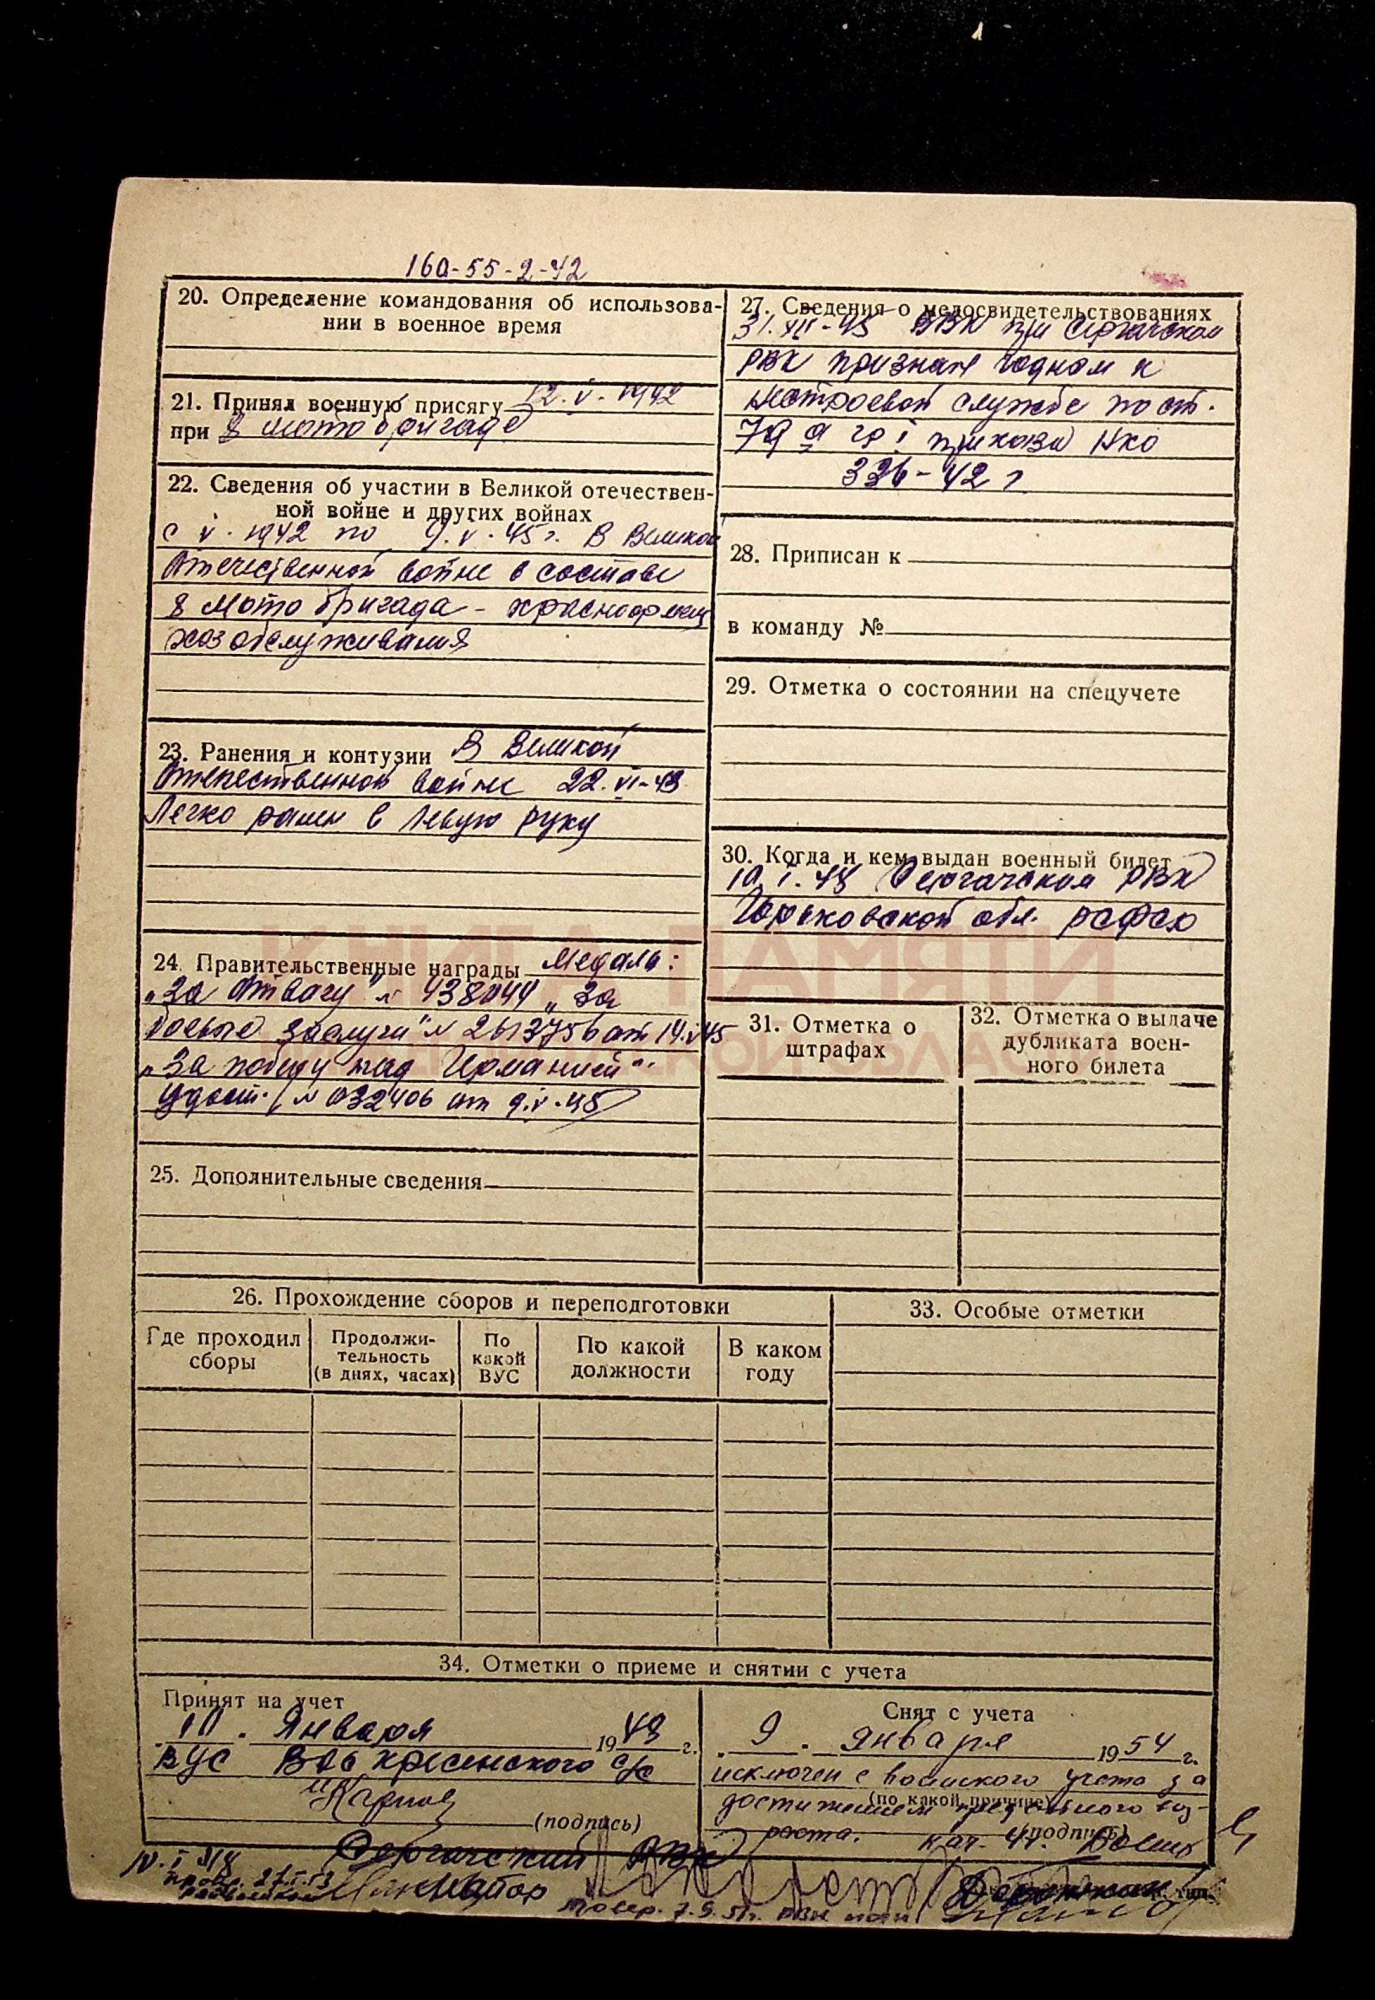 16а-55-2-42
20. Определение командования об использова-
нии в военное время
21. Принял военную присягу 12.V.1942
при 8 мото бригаде
22. Сведения об участии в Великой отечествен-
ной войне и других войнах
с V.1942 по 9.V.45 г. В Великой
Отечественной войне в составе
8 мото бригада - красноармеец
хоз обслуживания
23. Ранения и контузии В Великой
Отечественной войне 22.VI-43
Легко ранен в левую руку
24. Правительственные награды Медаль:
"За Отвагу" № 438044 "За
боевые заслуги" № 2613756 от 14.V.45
"За победу над Германией"
удост. № 032406 от 9.V.45
25. Дополнительные сведения
26. Прохождение сборов и переподготовки
Где проходил сборы
Продолжи-
тельность
(в днях, часах)
По
какой
ВУС
По какой
должности
В каком
году
27. Сведения о медосвидетельствованиях
31.XII-45 ВВК при Сергачском
РВК признан годным к
нестроевой службе по ст.
79 а гр I приказа НКО
336-42 г
28. Приписан к
в команду №
29. Отметка о состоянии на спецучете
30. Когда и кем выдан военный билет
10.I.48 Сергачским РВК
Горьковской обл. РСФСР
31. Отметка о
штрафах
32. Отметка о выдаче
дубликата воен-
ного билета
33. Особые отметки
34. Отметки о приеме и снятии с учета
Принят на учет
10. Января 1948 г.
ВУС Воскресенского с/с
(подпись)
Сергачский РВК
Майор
Снят с учета
9. Января 1954 г.
исключен с воинского учета за
(по какой причине)
достижением предельного воз-
раста.
(подпись)
КНИГА ПАМЯТИ